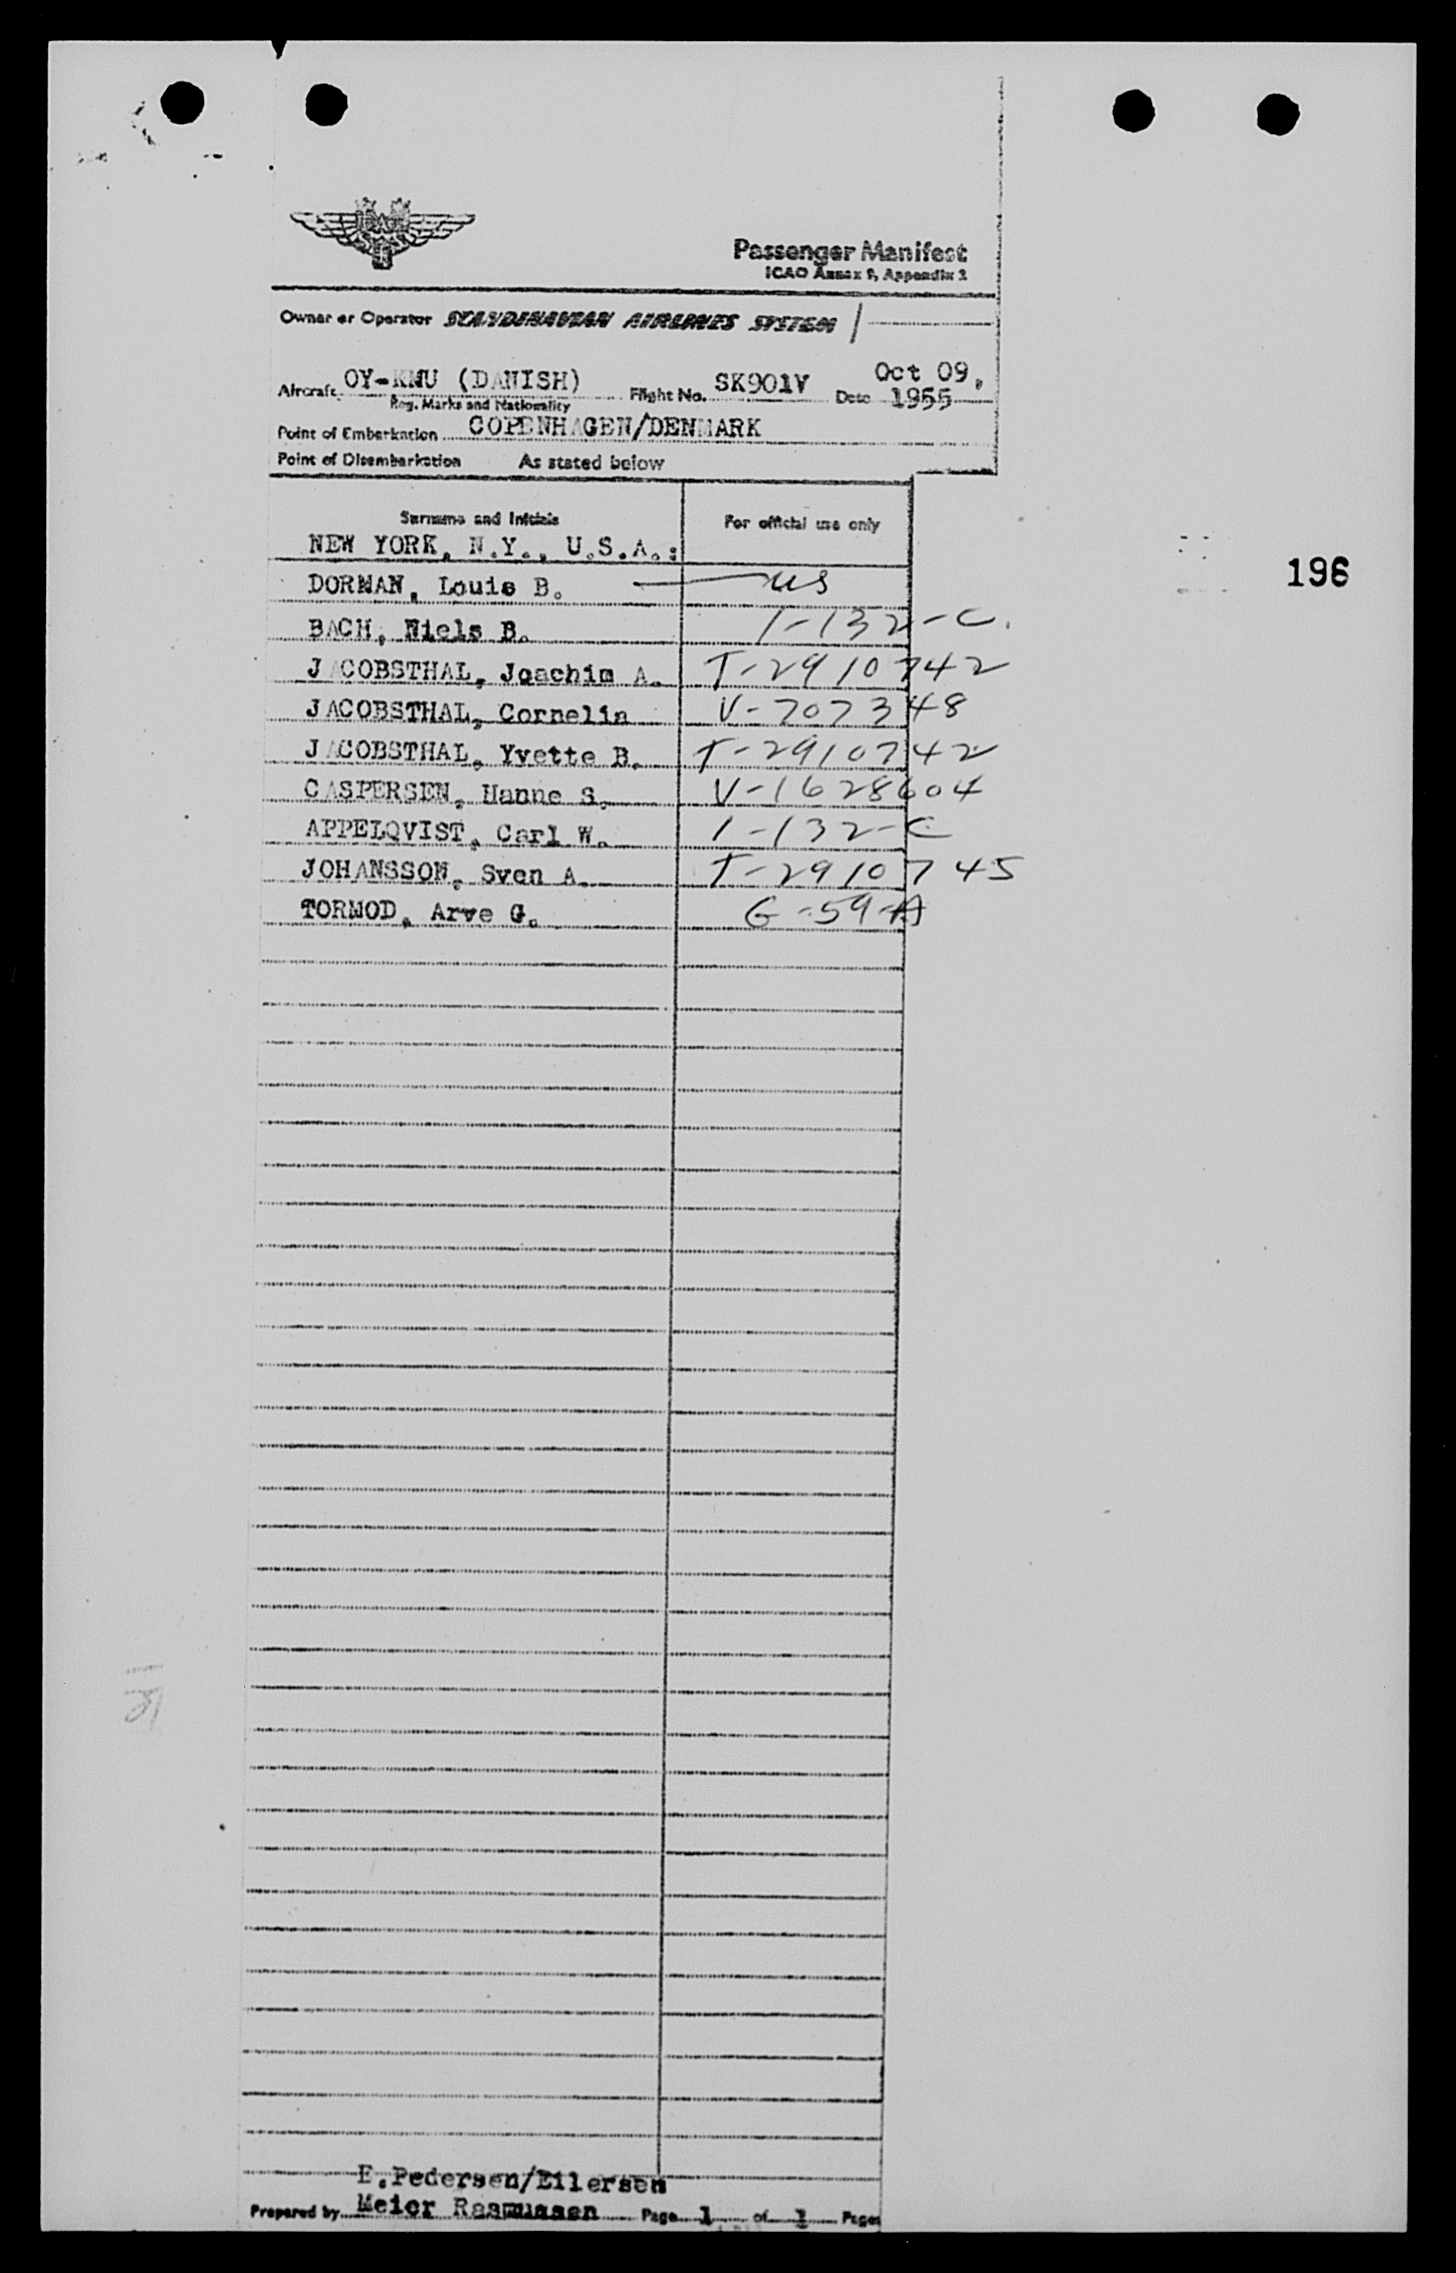 Passenger Manifest
ICAO Annex 9, Appendix 2
Owner or Operator SCANDINAVIAN AIRLINES SYSTEM
Aircraft OY-KMU (DANISH) Flight No. SK901V Date Oct 09, 1955
Reg. Marks and Nationality
Point of Embarkation COPENHAGEN/DENMARK
Point of Disembarkation As stated below
Surname and Initials For official use only
NEW YORK, N.Y., U.S.A.:
196
DORMAN, Louis B. US
BACH, Niels B. 1-132-C.
JACOBSTHAL, Joachim A. T-2910742
JACOBSTHAL, Cornelia V-707348
JACOBSTHAL, Yvette B. T-2910742
CASPERSEN, Hanne S. V-1628604
APPELQVIST, Carl W. 1-132-C
JOHANSSON, Sven A. T-2910745
TORMOD, Arve G. G-59-A
E.Pedersen/Eilersen
Prepared by Meier Rasmussen Page 1 of 1 Pages